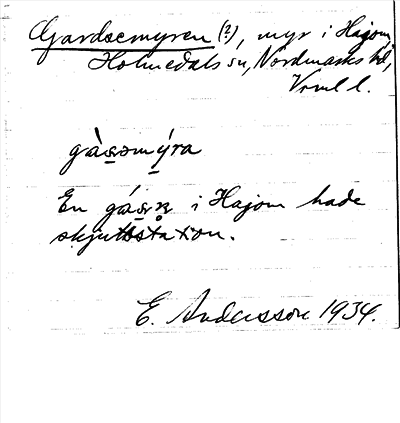 Gardsemyren (?), myr i Hajom,
Holmedals sn, Nordmarks hd,
Vrml l.
En i Hajom hade
skjutstation.
E. Andersson 1934.